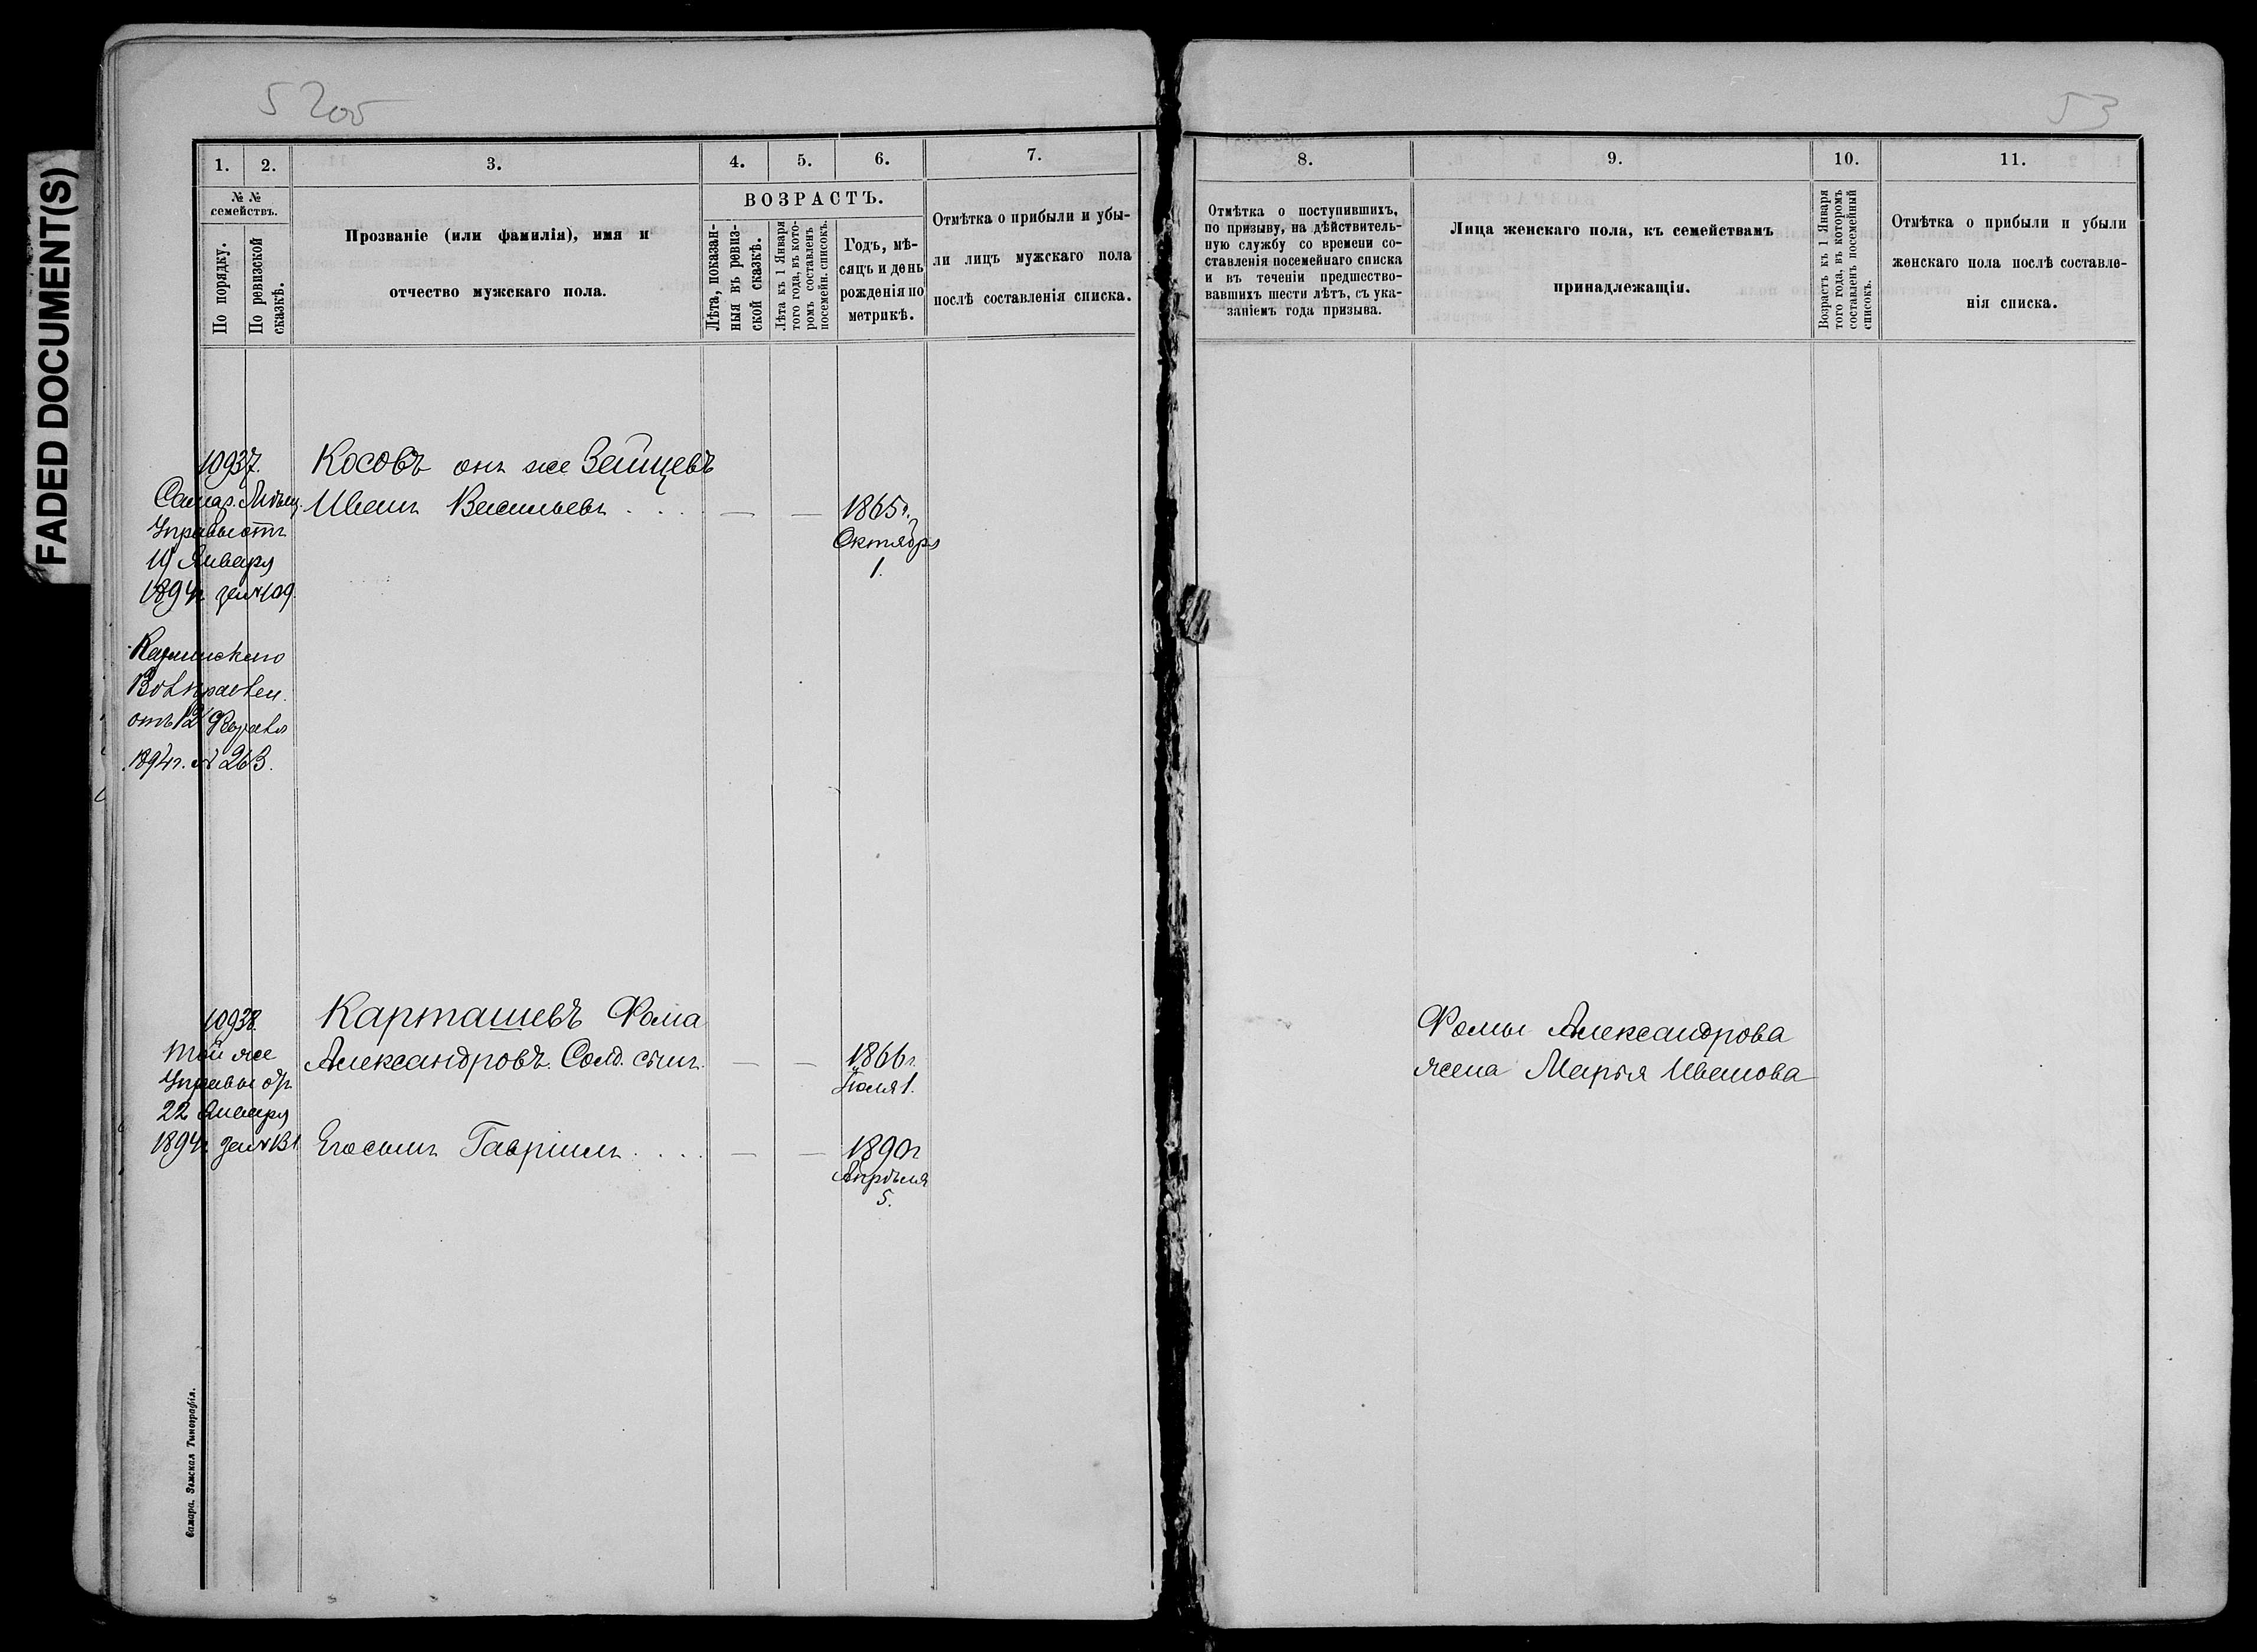 FADED DOCUMENT(S)
53
1.
2.
3.
4.
5.
6.
7.
№ №
семействъ.
По порядку.
По ревизской
сказкѣ.
Прозваніе (или фамилія), имя и
отчество мужскаго пола.
ВОЗРАСТЪ.
Лѣта, показан-
ныя въ ревиз-
ской сказкѣ.
Лѣта къ 1 Января
того года, въ кото-
ромъ составленъ
посемейн. списокъ.
Годъ, мѣ-
сяцъ и день
рожденія по
метрикѣ.
Отмѣтка о прибыли и убы-
ли лицъ мужскаго пола
послѣ составленія списка.
8.
9.
10.
11.
Отмѣтка о поступившихъ,
по призыву, на дѣйствитель-
ную службу со времени со-
ставленія посемейнаго списка
и въ теченіи предшество-
вавшихъ шести лѣтъ, съ ука-
заніемъ года призыва.
Лица женскаго пола, къ семействамъ
принадлежащія.
Возрастъ къ 1 Января
того года, въ которомъ
составленъ посемейный
списокъ.
Отмѣтка о прибыли и убыли
женскаго пола послѣ составле-
нія списка.
10937.
Косовъ онъ же Зайцевъ
Иванъ Васильевъ
1865г.
Октября
1.
Самар. Мѣщ.
Управы отъ
19 Января
1894г за № 109.
Вол правлен.
отъ 12 Февраля
1894г. № 263.
10938
Карташевъ Фома
Александровъ. Солд. сынъ.
1866г.
Іюля 1.
Той же
Управы отъ
22 Января
1894г за № 131
Его сынъ Гавріилъ
1890г
Апрѣля
5.
Фомы Александрова
жена Марья Иванова
Самара. Земская Типографія.